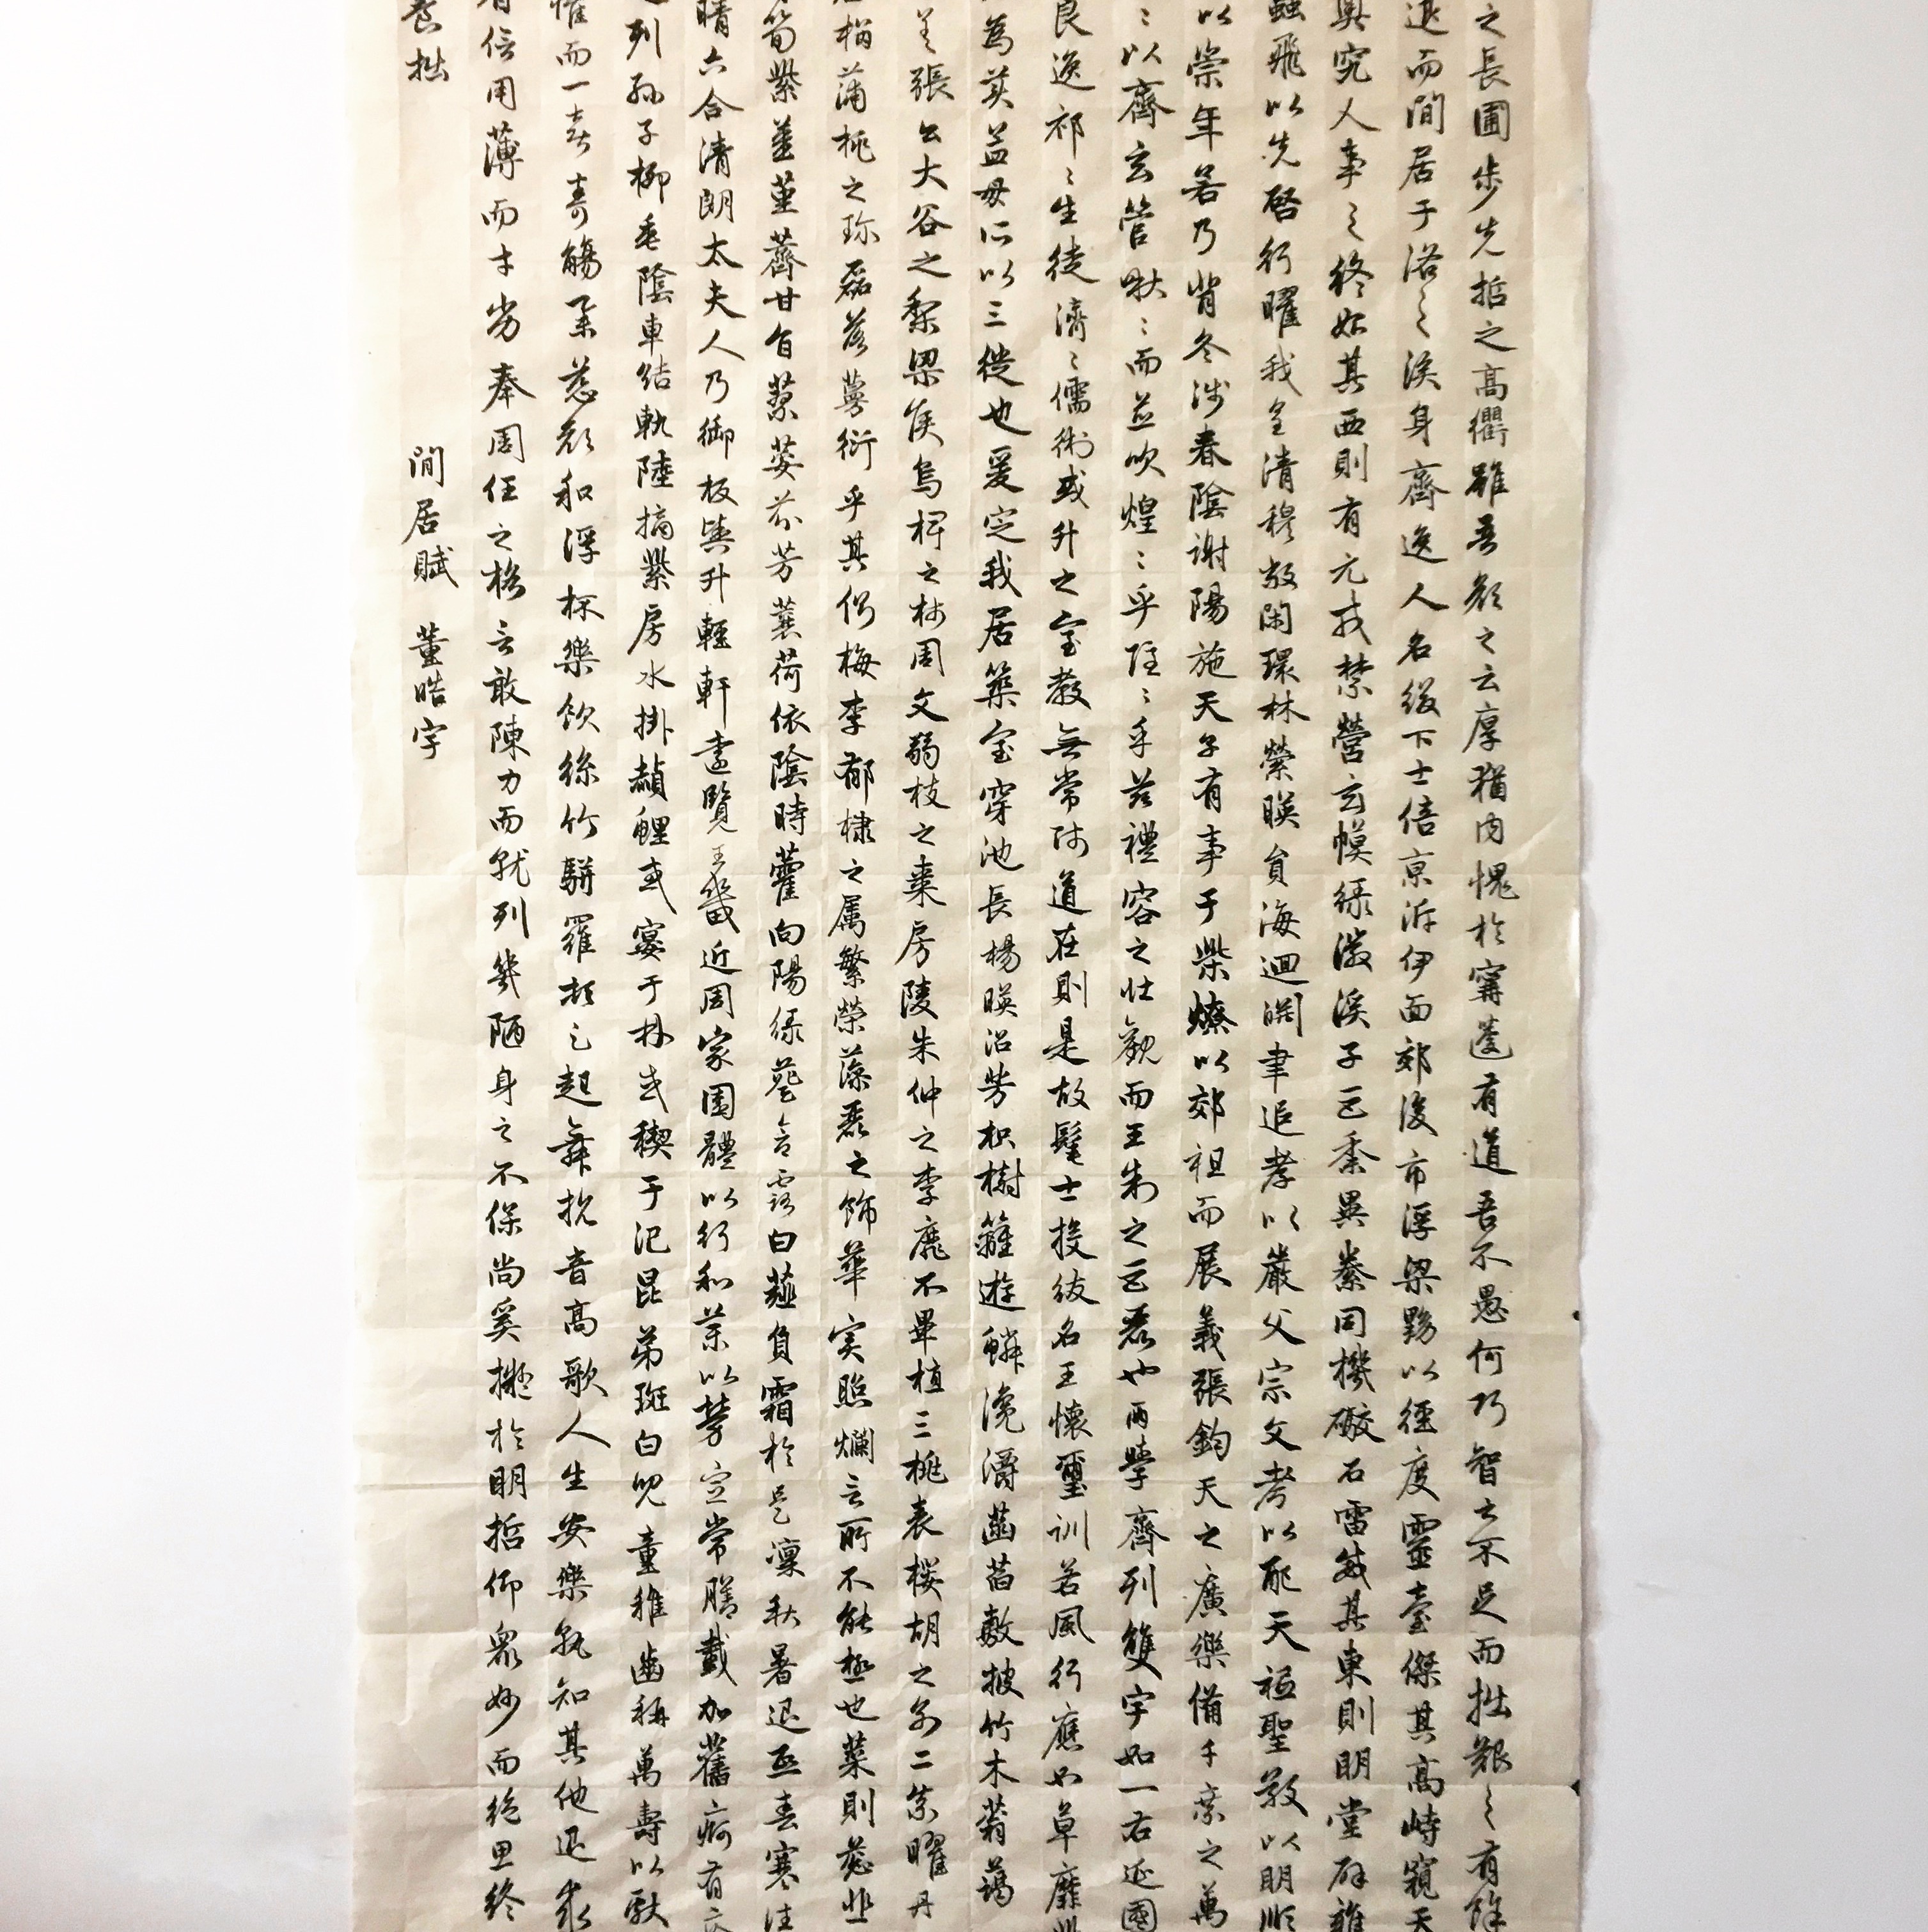 之長圃步先哲之高衢雖吾顏之云厚猶內愧於甯蘧有道吾不愚何巧智之不足而拙艱〻有餘
退而閒居于洛之涘身齊逸人名綴下士倍京泝伊面郊後市浮梁黝以徑度靈臺傑其高峙窺天
奧究人事之終始其西則有元戎禁營玄幙綠徽溪子巨黍異絭同機礮石雷駭其東則明堂辟雍
蝱飛以先啓行曜我皇清穆敞閑環林縈暎員海迴淵聿追孝以嚴父宗文考以配天祗聖敬以明順
以崇年若乃背冬涉春陰謝陽施天子有事于柴燎以郊祖而展義張鈞天之廣樂備千乘之萬
〻以齊玄管啾〻而並吹煌〻乎隱〻乎茲禮容之壯觀而王制之巨麗也兩學齊列雙宇如一右延國
良逸祁〻生徒濟〻儒術或升之室教無常師道在則是故髦士投紱名王懷璽訓若風行應如草靡此
為美孟母所以三徙也爰定我居築室穿池長楊暎沼芳枳樹籬遊鱗瀺灂菡萏敷披竹木蓊藹
差張公大谷之梨梁侯烏椑之柿周文弱枝之棗房陵朱仲之李靡不畢植三桃表櫻胡之別二柰曜丹
榴蒲桃之珍磊落蔓衍乎其側梅李郁棣之属繁榮藻麗之飾華実照爛言所不能極也菜則葱韭
筍紫薑堇薺甘旨蓼荾芬芳蘘荷依陰時藿向陽綠葵含露白薤負霜於是凜秋暑退熙春寒往
晴六合清朗太夫人乃御板輿升輕軒遠覽王畿近周家園體以行和藥以勞宣常膳載加舊痾有痊
列孫子柳垂陰車結軌陸摘紫房水掛赬鯉或宴于林或禊于汜昆弟斑白兒童稚齒稱萬壽以獻
懼而一喜壽觴舉慈顏和浮杯樂飲絲竹駢羅頓足起舞抗音高歌人生安樂孰知其他退求
信用薄而才劣奉周任之格言敢陳力而就列幾陋身之不保尚奚擬於明哲仰眾妙而絕思終
養拙
閒居賦 董皓宇